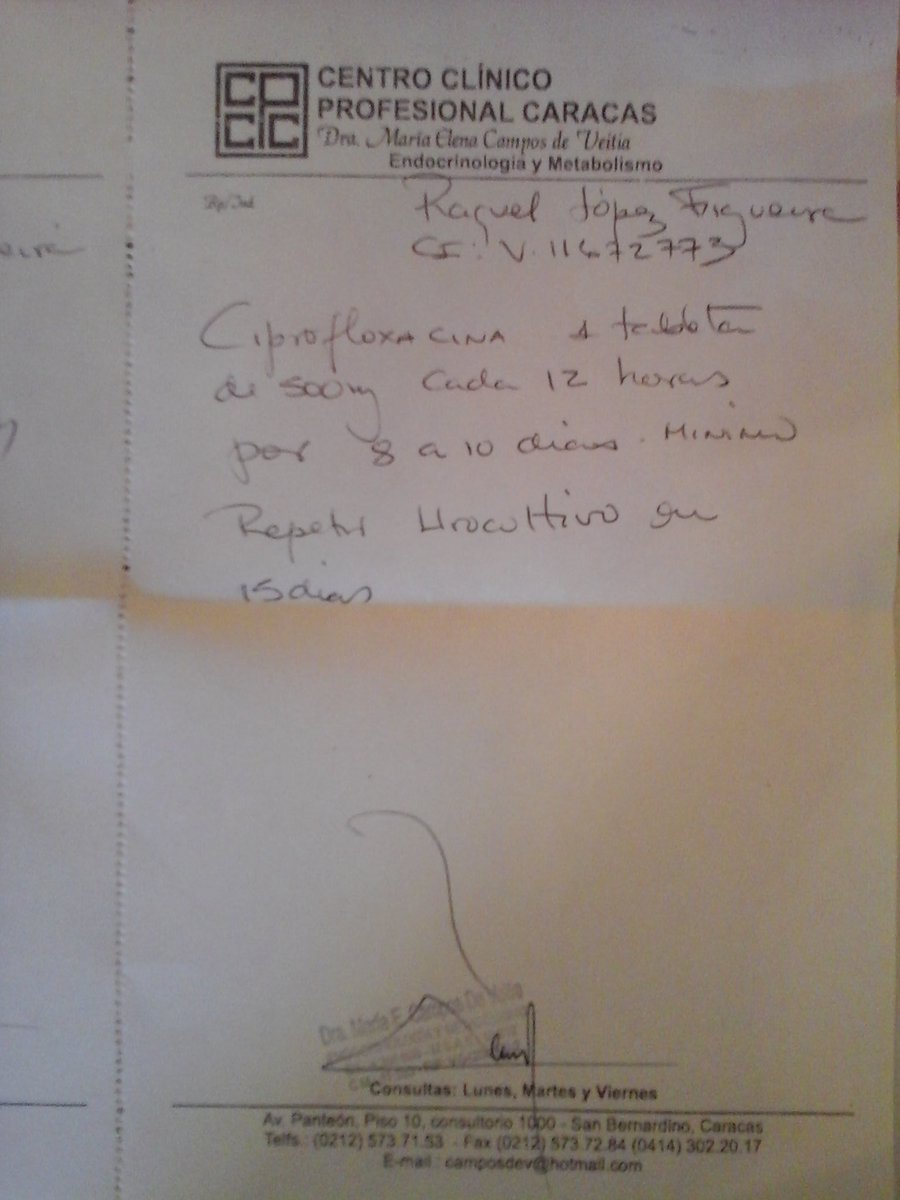 CPCC
CENTRO CLÍNICO
PROFESIONAL CARACAS
Dra. María Elena Campos de Veitia
Endocrinología y Metabolismo
Rp/Ind
Raquel López Figueira
CI: V. 11472773
Ciprofloxacina 1 tableta
de 500mg cada 12 horas
por 8 a 10 dias. MINIMO
Repetir Urocultivo en
15 dias
Dra. María E. Campos De Veitia
Consultas: Lunes, Martes y Viernes
Av. Panteón, Piso 10, consultorio 1000 - San Bernardino, Caracas
Telfs.: (0212) 573.71.53 - Fax (0212) 573.72.84 (0414) 302.20.17
E-mail.: camposdev@hotmail.com